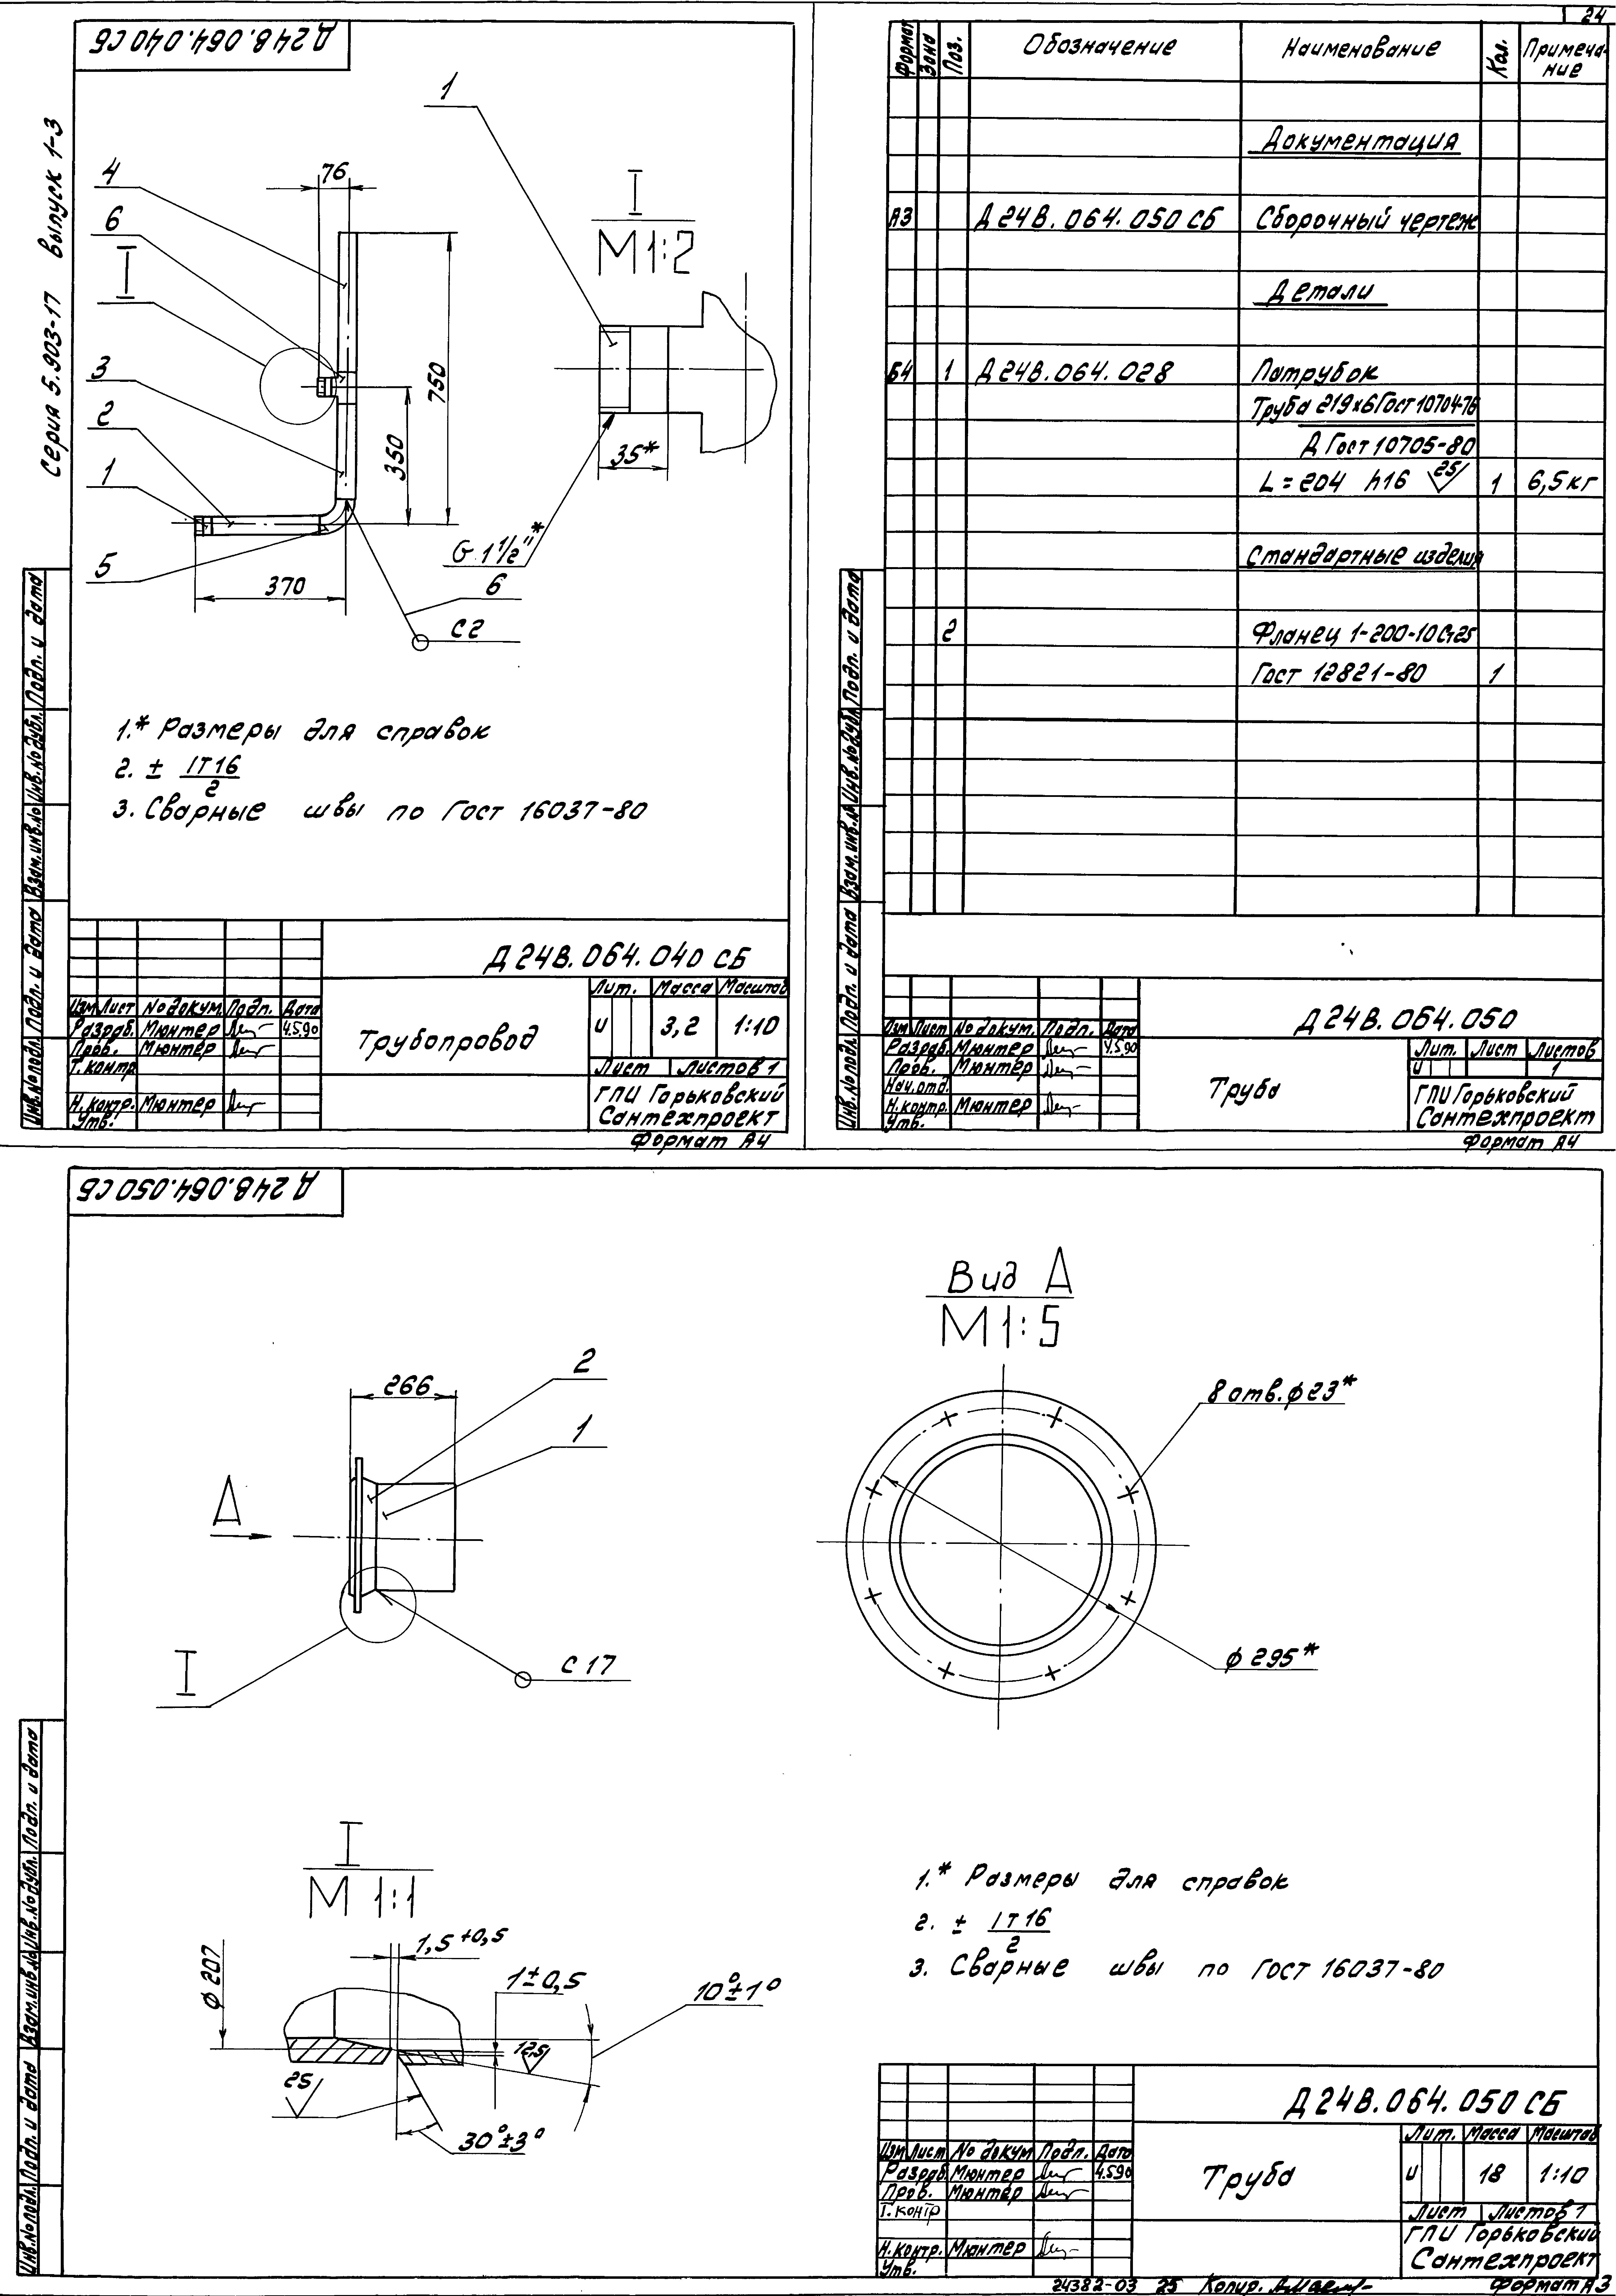 Д 24В.064.040 СБ
Серия 5.903-17 выпуск 1-3
1
4
76
6
I
I
М1:2
3
750
2
350
35*
1
G 1 1/2"*
5
370
6
С2
1.* Размеры для справок
2. ± IT16/2
3. Сварные швы по Гост 16037-80
Инв.№подл. Подп. и дата Взам.инв.№ Инв.№дубл. Подп. и дата
Д 24В.064.040 СБ
Лит. Масса Масштаб
Изм Лист № докум. Подп. Дата
Разраб. Мюнтер 4.5.90
Трубопровод
и 3,2 1:10
Пров. Мюнтер
Т. контр
Лист Листов 1
Н. контр. Мюнтер
ГПИ Горьковский
Утв.
Сантехпроект
Формат А4
24
Формат Зона Поз. Обозначение Наименование Кол. Примеча-
ние
Документация
А3 Д 24В.064.050 СБ Сборочный чертеж
Детали
Б4 1 Д 24В.064.028 Патрубок
Труба 219х6 Гост 10704-76
Д Гост 10705-80
L=204 h16 25 1 6,5кг
Стандартные изделия
2 Фланец 1-200-10Ст25
Гост 12821-80 1
Инв.№подл. Подп. и дата Взам.инв.№ Инв.№дубл. Подп. и дата
Д 24В.064.050
Изм Лист № докум. Подп. Дата
Разраб. Мюнтер 4.5.90
Лит. Лист Листов
Пров. Мюнтер
и 1
Труба
Нач.отд.
Н.контр. Мюнтер
ГПИ Горьковский
Утв.
Сантехпроект
Формат А4
Д 24В.064.050 СБ
Вид А
М1:5
2
266
8 отв.ф23*
1
А
ф 295*
С 17
I
I
М 1:1
1.* Размеры для справок
2. ± IT16/2
3. Сварные швы по Гост 16037-80
1,5+0,5
ф 207
1±0,5
10°±1°
12,5
25
30°±3°
Инв.№подл. Подп. и дата Взам.инв.№ Инв.№дубл. Подп. и дата
Д 24В.064.050 СБ
Лит. Масса Масштаб
Изм Лист № докум Подп. Дата
Разраб. Мюнтер 4.5.90
Труба
и 18 1:10
Пров. Мюнтер
Т. контр
Лист Листов 1
ГПИ Горьковский
Н.контр. Мюнтер
Сантехпроект
Утв.
24382-03 25 Копир.
Формат А3